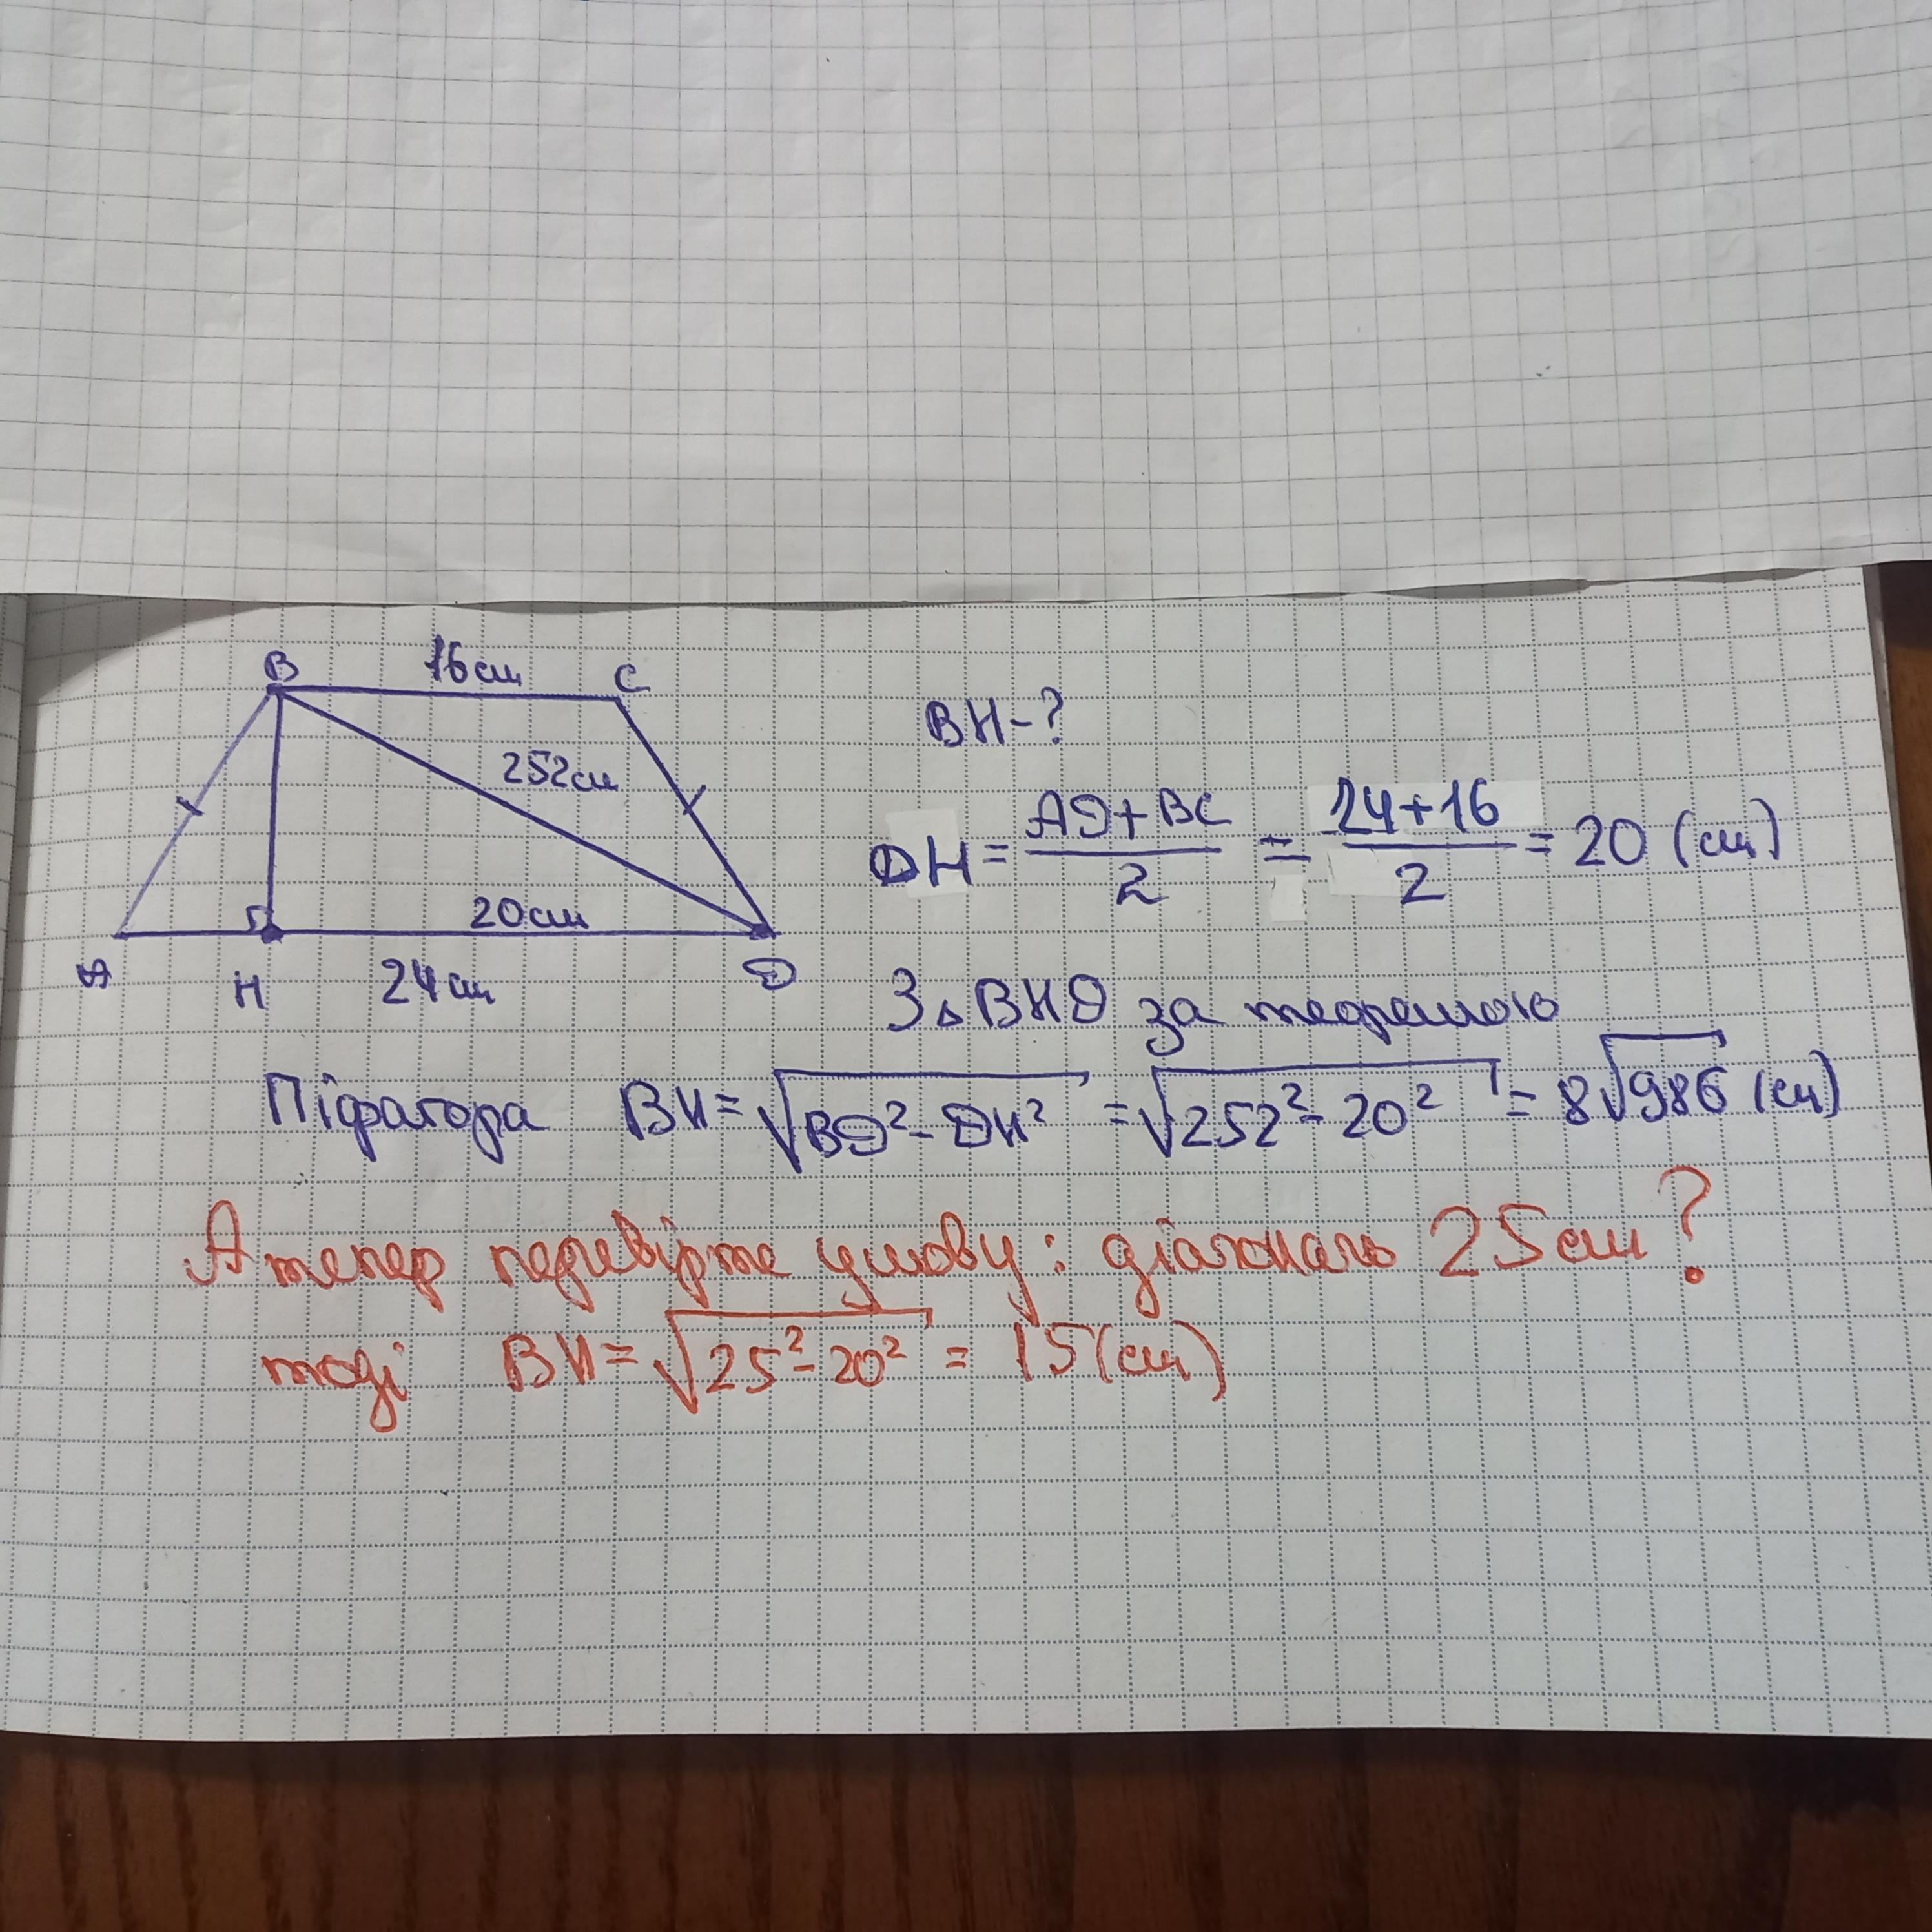 B 16см C
252см
20см
A H 24см D
BH-?
DH = AD+BC / 2 = 24+16 / 2 = 20 (см)
З △BHD за теоремою
Піфагора BH = √BD² - DH² = √252² - 20² = 8√986 (см)
А тепер перевірте умову: діагональ 25см?
тоді BH = √25² - 20² = 15(см)